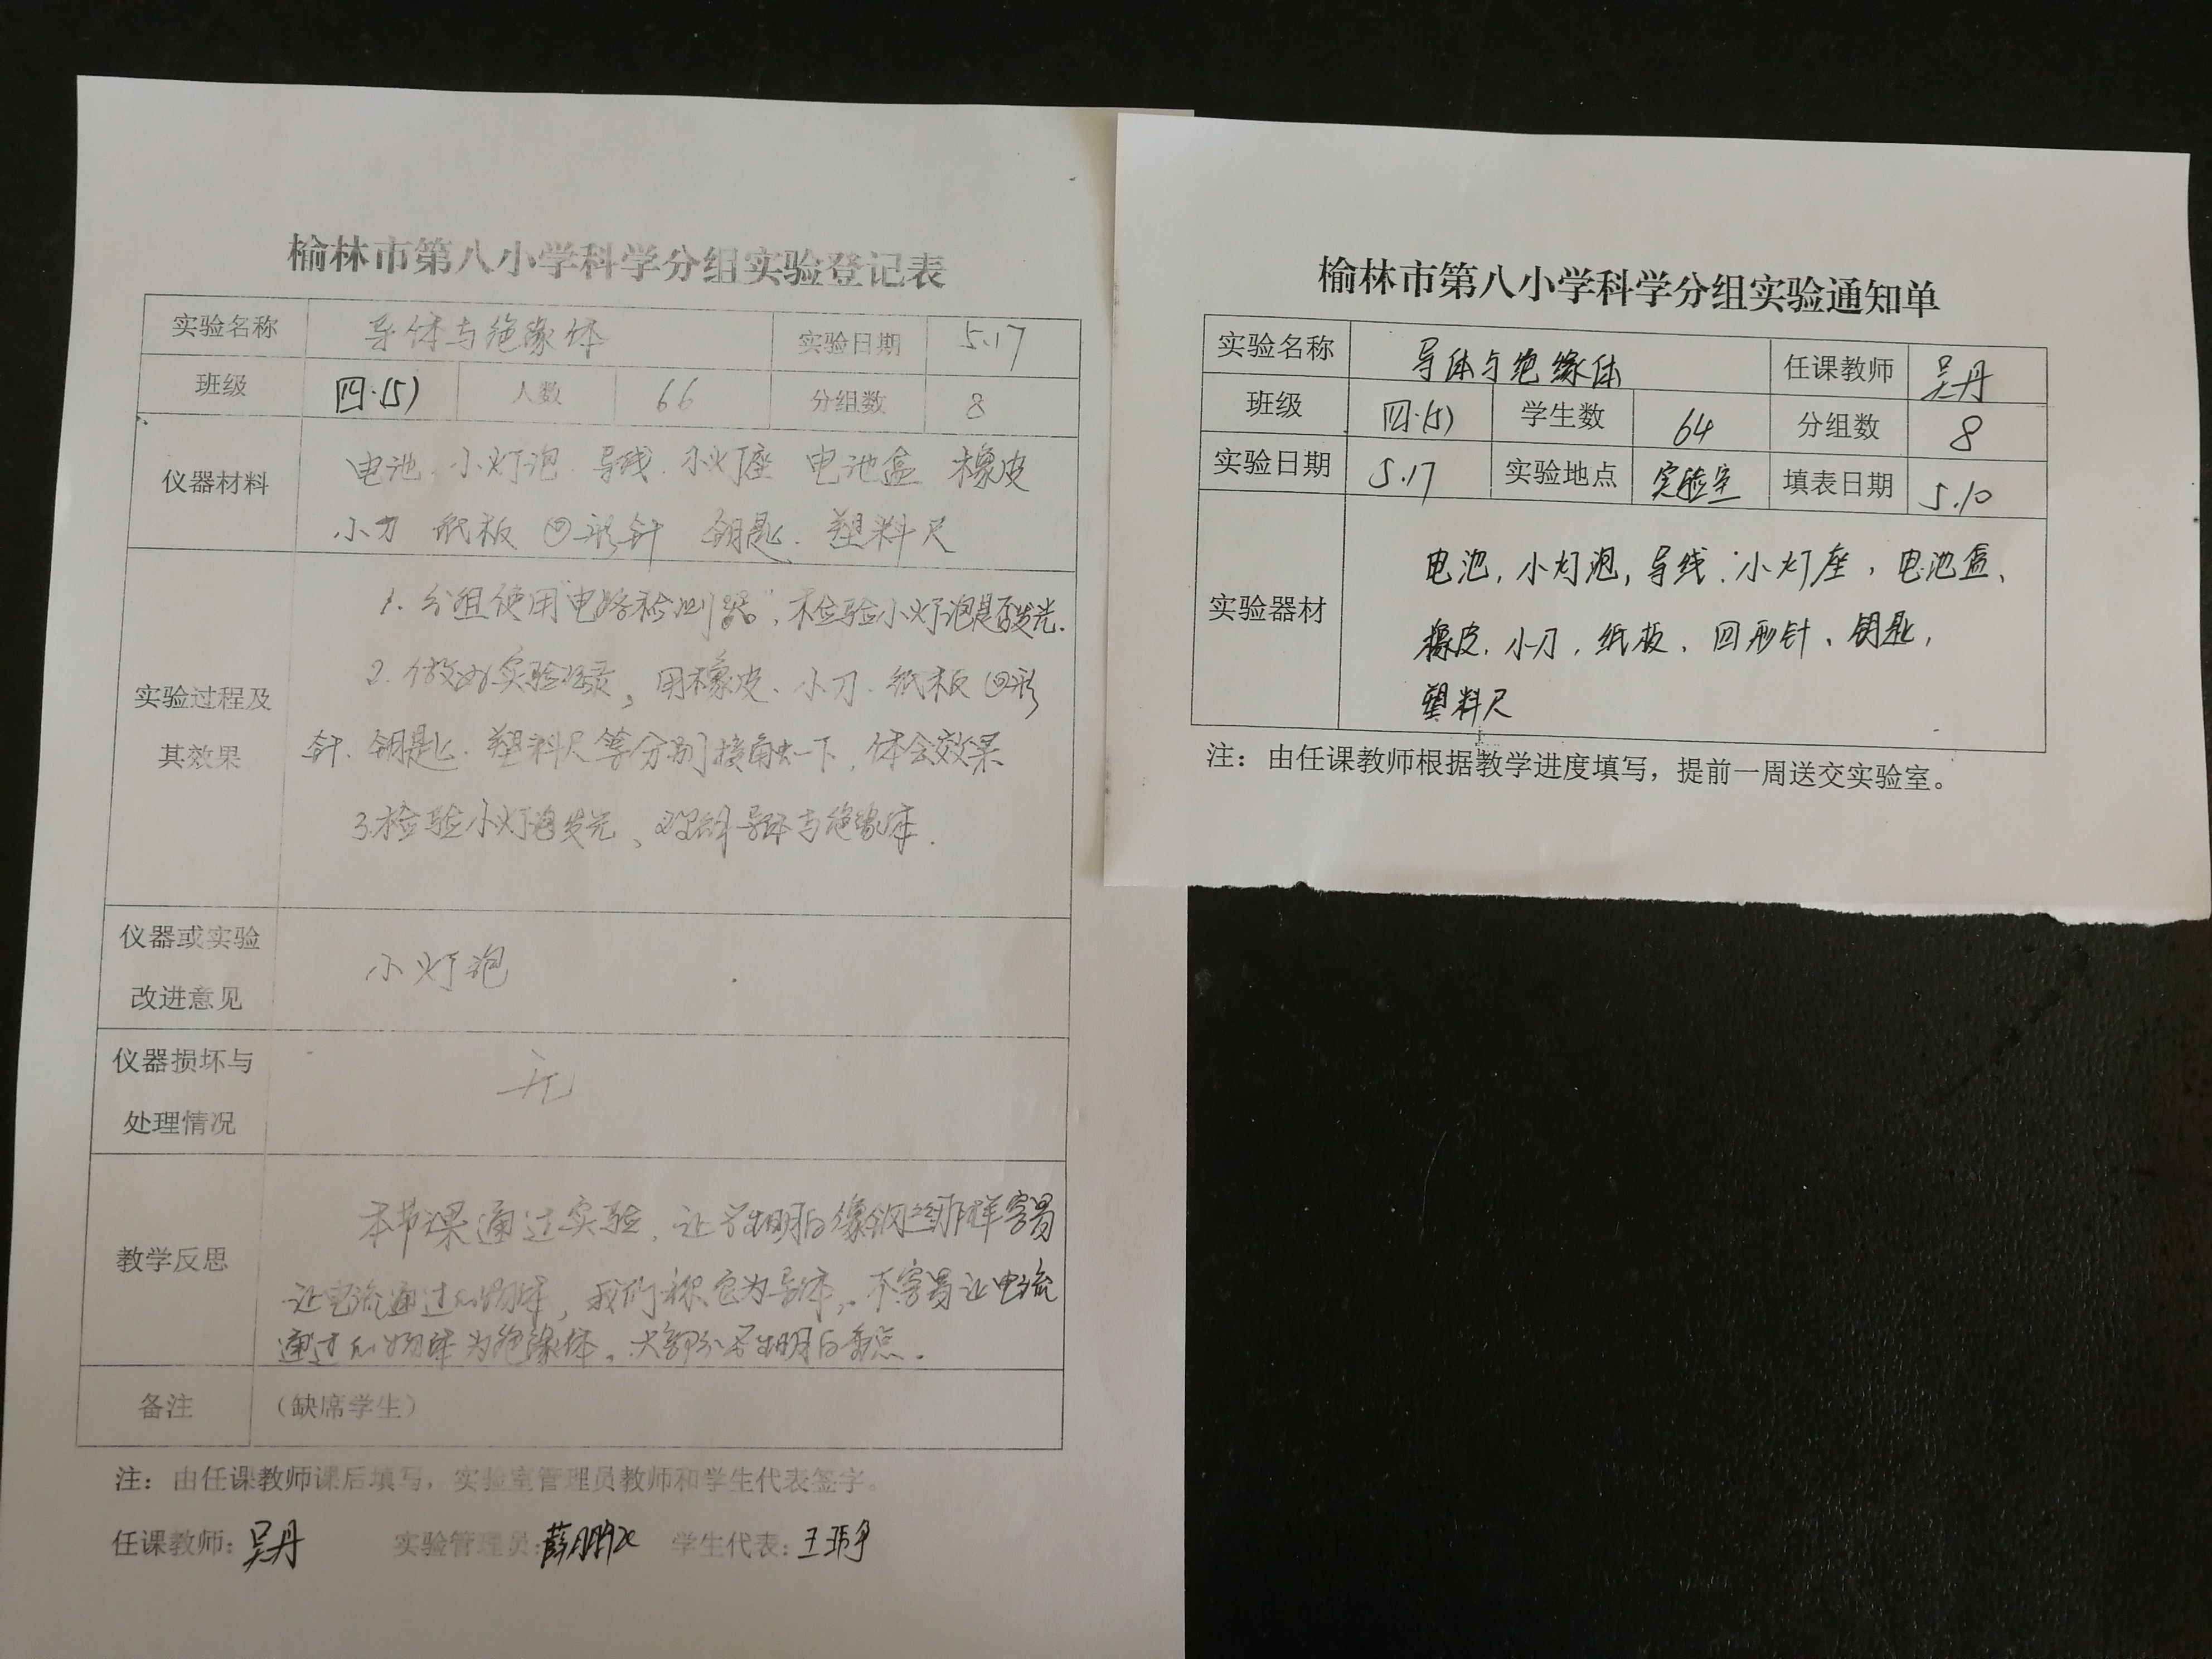 榆林市第八小学科学分组实验登记表
实验名称 导体与绝缘体 实验日期 5.17
班级 四·(5) 人数 66 分组数 8
仪器材料
电池、小灯泡 导线、小灯座 电池盒 橡皮
小刀 纸板 回形针 钥匙、塑料尺
实验过程及
其效果
1. 分组使用“电路检测器”,检验小灯泡是否发光.
2. 做好实验记录,用橡皮、小刀、纸板 回形
针、钥匙、塑料尺等分别接触一下,体会效果
3.检验小灯泡发光、理解导体与绝缘体.
仪器或实验
改进意见
小灯泡
仪器损坏与
处理情况
无
教学反思
本节课通过实验,让学生明白像铜丝那样容易
让电流通过的物体,我们称它为导体,不容易让电流
通过的物体为绝缘体。大部分学生明白重点.
备注 (缺席学生)
注:由任课教师课后填写,实验室管理员教师和学生代表签字。
任课教师:吴丹 实验管理员: 学生代表:
榆林市第八小学科学分组实验通知单
实验名称 导体与绝缘体 任课教师 吴丹
班级 四·(5) 学生数 64 分组数 8
实验日期 5.17 实验地点 实验室 填表日期 5.10
实验器材
电池,小灯泡,导线、小灯座,电池盒、
橡皮、小刀,纸板、回形针、钥匙,
塑料尺
注:由任课教师根据教学进度填写,提前一周送交实验室。